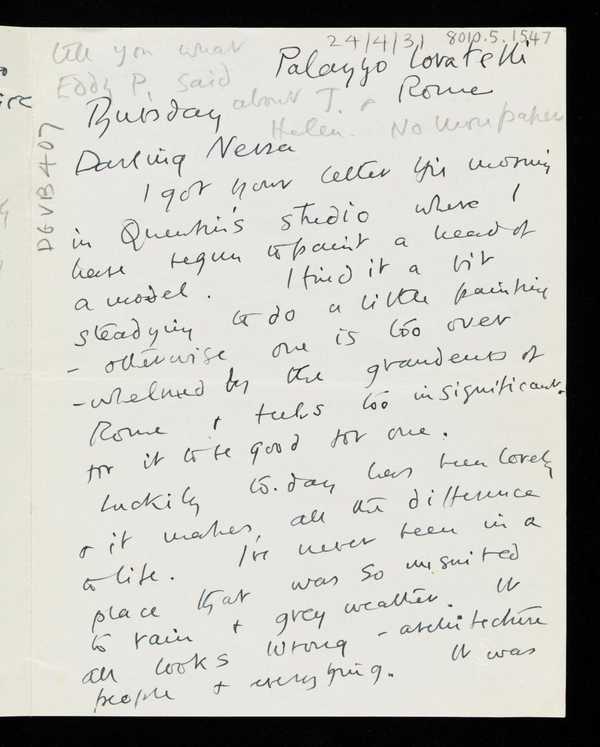 tell you what
Eddy P. said
about T. &
Helen. No more paper
24/4/31 8010.5.1547
DGVB407
Palazzo Lovatelli
Rome
Thursday
Darling Nessa
I got your letter this morning
in Quentin's studio where I
have begun to paint a head of
a model. I find it a bit
steadying to do a little painting
- otherwise one is too over
-whelmed by the grandeurs of
Rome & feels too insignificant
for it to be good for one.
Luckily to-day has been lovely
& it makes all the difference
to life. I've never been in a
place that was so unsuited
to rain & grey weather. It
all looks wrong - architecture
people & everything. It was